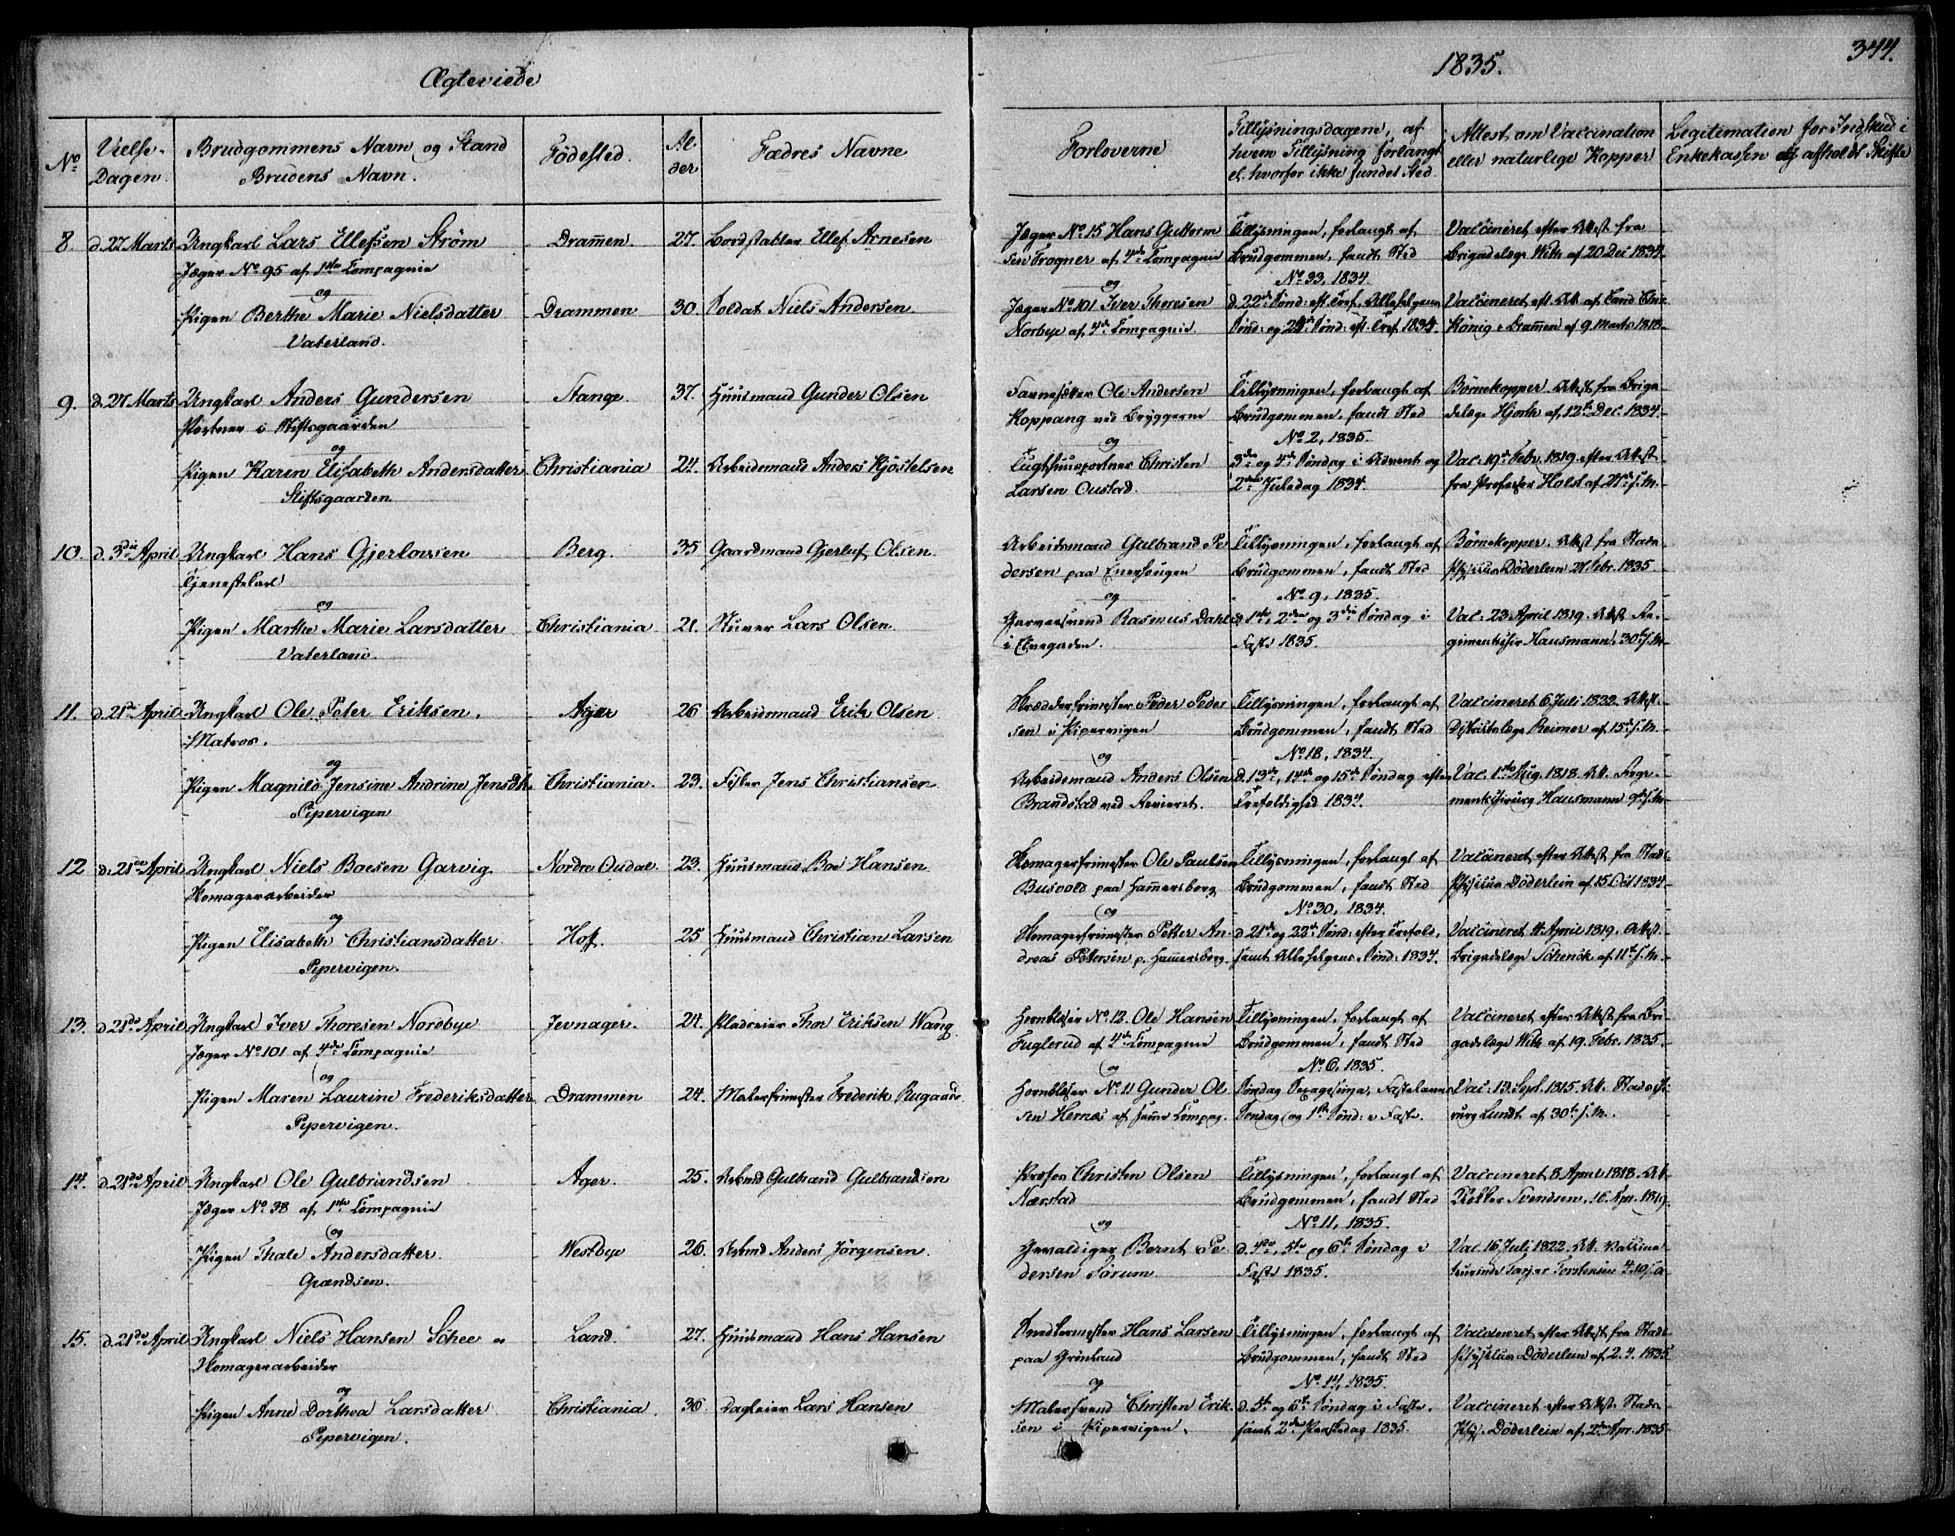 Ægteviede
1835.
344.
No
Vielse-Dagen
Brudgommens Navn og Stand
Brudens Navn.
Fødested.
Alder
Fædres Navne
Forloverne
Tillysningsdagene, af
hvem Tillysning forlangt
el. hvorfor ikke fundet Sted
Attest om Vaccination
eller naturlige Kopper
Legitimation for Indskud i
Enkekassen og afholdt Skifte
8. d. 27 Marts Ungkarl Lars Ellefsen Strøm Dramen. 27. Bordstabler Ellef Arnesen
Jæger No 95 af 1ste Compagnie
og
Pigen Berthe Marie Nielsdatter Drammen 30. Soldat Niels Andersen
Vaterland.
Jæger No 15 Hans Guttorm
sen Frogner af 4de Compagnie
og
Jæger No 101 Iver Thoresen
Norbye af 4de Compagnie
Tillysningen, forlangt af
Brudgommen, fandt Sted
No 33, 1834.
d. 22de Sønd: eft. Tref., Allehelgens
Sønd: og 24de Sønd: eft. Tref. 1834.
Vaccineret efter Attest fra
Brigadelæge With af 20 Dec 1834.
Vaccineret eft. Att. af Cand. Chir.
König i Dramen af 9 Marts 1818.
9. d. 27 Marts Ungkarl Anders Gundersen Stange. 37. Huusmand Gunder Olsen
Portner i Stiftsgaarden
og
Pigen Karen Elisabeth Andersdatter Christiania 24. Arbeidsmand Anders Kjöstelsen
Stiftsgaarden
Favnesætter Ole Andersen
Koppang ved Bryggerne
og
Tugthuusportner Christen
Larsen Oustad.
Tillysningen, forlangt af
Brudgommen, fandt Sted
No 2, 1835.
3die og 4de Søndag i Advent og
2den Juledag 1834.
Børnekopper Attest fra Briga
delæge Hjorth af 12te Dec. 1834.
Vac. 19de Febr. 1819 efter Attest
fra Professor Holst af 27de s. M.
10. d. 3die April Ungkarl Hans Gjerlovsen Berg. 35 Gaardmand Gjerluf Olsen
Tjenestekarl
og
Pigen Marthe Marie Larsdatter Christiania 21. Stuver Lars Olsen
Vaterland.
Arbeidsmand Gulbrand Pe
dersen paa Enerhougen
og
Garversvend Rasmus Dahl
i Elvegaden.
Tillysningen, forlangt af
Brudgommen, fandt Sted
No 9, 1835.
d. 1ste, 2den og 3die Søndag i
Faste 1835.
Børnekopper. Attest fra Stads
physicus Döderlein 21 Febr. 1835.
Vac: 23 April 1819 Attest Re-
gimentschir Hausmann. 30te s. M.
11. d. 21de April Ungkarl Ole Peter Eriksen. Ager 26 Arbeidsmand Erik Olsen
Matros.
og
Pigen Magnild Jensine Andrine Jensdtr Christiania. 23. Fisker Jens Christiansen
Pipervigen
Skræddermester Peder Peder
sen i Pipervigen
og
Arbeidsmand Anders Olsen
Brandstad ved Revieret.
Tillysningen, forlangt af
Brudgommen, fandt Sted
No 18, 1834.
d. 13de, 14de og 15de Søndag efter
Trefoldighed 1834.
Vaccineret 6 Juli 1832. Attest
Districtslæge Reimer af 15de s. M.
Vac. 1ste Aug. 1818. Att. Regi-
mentschirurg Hausmann 9de s. M.
12 d. 21de April Ungkarl Niels Boesen Garvig. Nordre Oudal. 23. Huusmand Boe Hansen
Skomagerarbeider
og
Pigen Elisabeth Christiansdatter Hoff. 25 Huusmand Christian Larsen
Pipervigen.
Skomagermester Ole Paulsen
Busvold paa Hamersborg
og
Skomagermester Petter An-
dreas Petersen p. Hamersborg
Tillysningen, forlangt af
Brudgommen, fandt Sted
No 30, 1834.
d. 21de og 22de Sønd: efter Trefold.
samt Allehelgens Sønd: 1834.
Vaccineret efter Attest fra Stads
physicus Döderlein af 15 Oct 1834
Vaccineret 11 April 1819. Attest
Brigadelæge Schenck af 11te s. M.
13. d 21de April Ungkarl Iver Thoresen Nordbye Jevnager. 24. Pladseier Thor Eriksen Wang
Jæger No 101 af 4de Compagnie
og
Pigen Maren Laurine Frederiksdatter Drammen 24. Malermester Frederik Rugaard
Pipervigen.
Hornblæser No 12. Ole Hansen
Fuglerud af 4de Compagnie
og
Hornblæser No 11 Gunder Ol
sen Hernæs af samme Compag.
Tillysningen, forlangt af
Brudgommen, fandt Sted
No 6, 1835.
Søndag Sexagesima, Fastelavns
Søndag og 1ste Sønd: i Faste.
Vaccineret efter Attest fra Bri
gadelæge With af 19. Febr. 1835.
Vac: 13. Sept. 1815. Att. Stadschi
rurg Lundt af 30te s. M.
14. d. 21de April Ungkarl Ole Gulbrandsen Ager. 25. Arbmd Gulbrand Gulbrandsen
Jæger No 38 af 1ste Compagnie
og
Pigen Thale Andersdatter. Westbye 26. Arbmd Anders Jörgensen.
Grændsen.
Profos Christen Olsen
Nærstad
og
Gevaldiger Bernt Pe
dersen Sørum
Tillysningen, forlangt af
Brudgommen, fandt Sted
No 11, 1835.
d. 4de, 5te og 6te Søndag i
Faste 1835.
Vaccineret 8 April 1818. Att
Klokker Svendsen. 16 Apr. 1819.
Vac. 16 Juli 1822. Att. Vaccina-
teurinde Torstensen
15. d. 21de April Ungkarl Niels Hansen Sohee Land. 27. Huusmand Hans Hansen
Skomagerarbeider
og
Pigen Anne Dorthea Larsdatter Christiania. 36. Dagleier Lars Hansen
Pipervigen.
Hans Larsen
paa Grönland
og
Malersvend Christen Erik-
sen i Pipervigen.
Tillysningen, forlangt af
Brudgommen, fandt Sted
No 14, 1835.
d. 5te og 6te Søndag i Faste,
samt 2den Paaskedag 1835.
Vaccineret efter Attest fra Stads
physicus Döderlein af 2. 4. 1835
Vaccineret efter Attest Stads
phys. Döderlein af 2den Apr. 1835